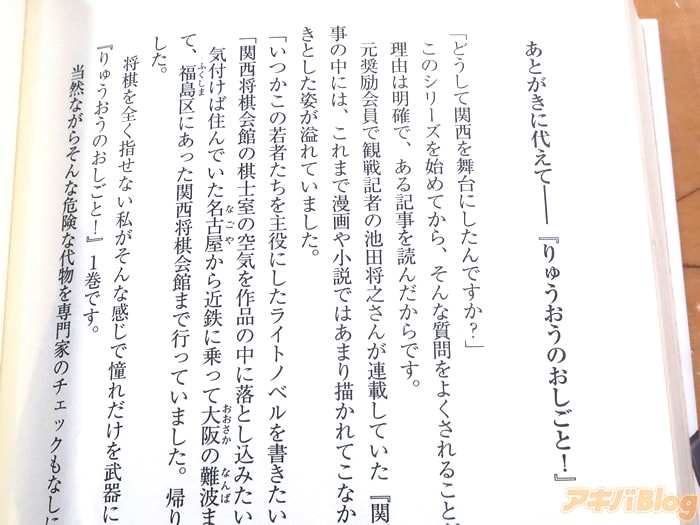 あとがきに代えて――『りゅうおうのおしごと!』
「どうして関西を舞台にしたんですか?」
このシリーズを始めてから、そんな質問をよくされること
理由は明確で、ある記事を読んだからです。
元奨励会員で観戦記者の池田将之さんが連載していた『関
事の中には、これまで漫画や小説ではあまり描かれてこなか
きとした姿が溢れていました。
「いつかこの若者たちを主役にしたライトノベルを書きたい
「関西将棋会館の棋士室の空気を作品の中に落とし込みたい
気付けば住んでいた名古屋から近鉄に乗って大阪の難波ま
て、福島区にあった関西将棋会館まで行っていました。帰り
した。
将棋を全く指せない私がそんな感じで憧れだけを武器に
『りゅうおうのおしごと!』1巻です。
当然ながらそんな危険な代物を専門家のチェックもなしに
アキバBlog